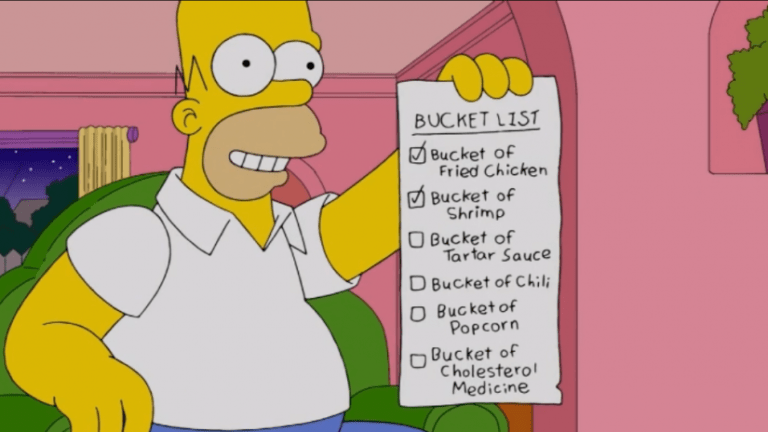 BUCKET LIST
Bucket of
Fried Chicken
Bucket of
Shrimp
Bucket of
Tartar Sauce
Bucket of Chili
Bucket of
Popcorn
Bucket of
Cholesterol
Medicine